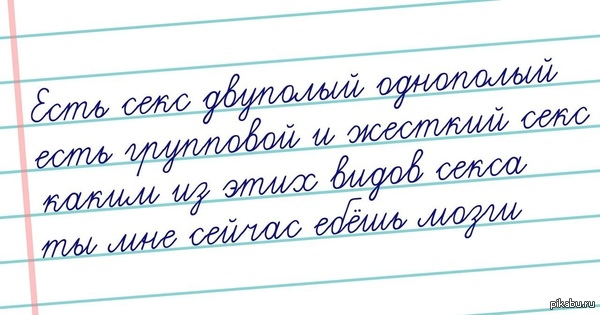 Есть секс двуполый однополый
есть групповой и жесткий секс
каким из этих видов секса
ты мне сейчас ебёшь мозги
pikabu.ru